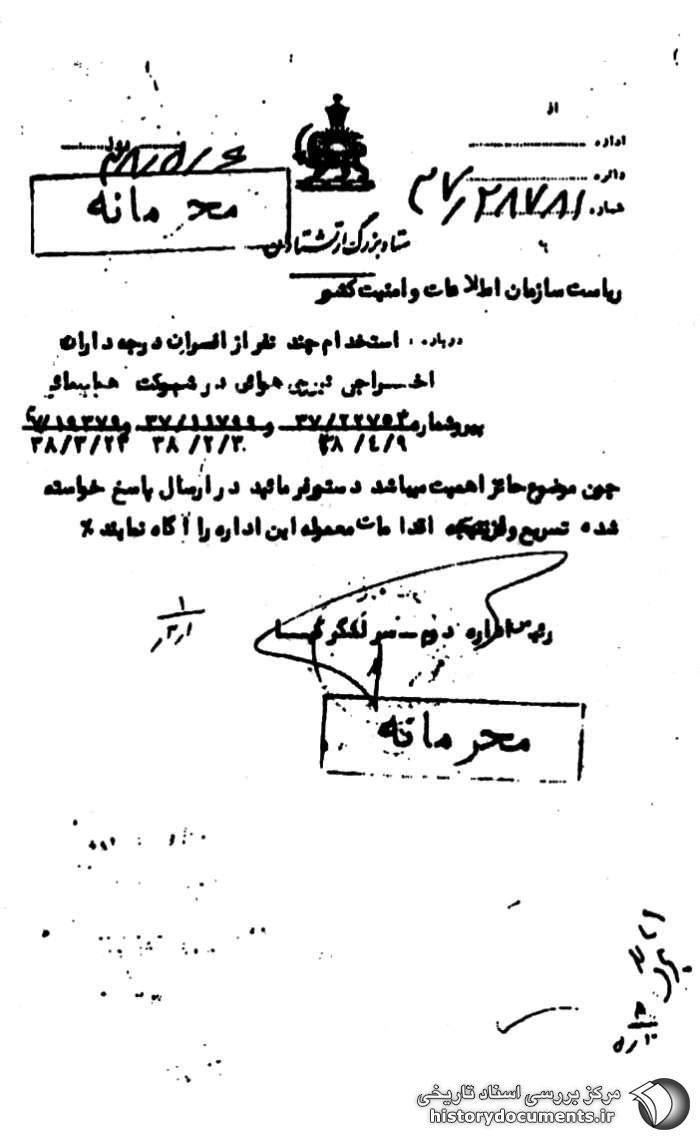 از
اداره
دائره
شماره ۲۷/۲۸۷۸۱
۳۸/۵/۶
محرمانه
ستاد بزرگ ارتشتاران
ریاست سازمان اطلاعات و امنیت کشور
درباره: استخدام چند نفر از افسران درجه داران
اخراجی نیروی هوائی در شرکت هواپیمائی
پیرو شماره ۳۷/۲۲۷۵۲ و ۳۷/۱۱۷۹۹ و ۲۷/۱۹۳۷۹
۳۸/۴/۹ ۳۸/۲/۳۰ ۳۸/۳/۲۳
چون موضوع حائز اهمیت میباشد دستور فرمائید در ارسال پاسخ خواسته
شده تسریع و از نتیجه اقدامات معموله این اداره را آگاه نمایند٪
رئیس اداره دوم - سرلشگر کیا
محرمانه
مرکز بررسی اسناد تاریخی
historydocuments.ir